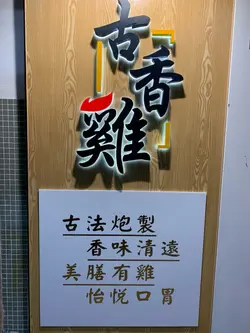 古香雞
古法炮製
香味清遠
美膳有雞
怡悅口胃